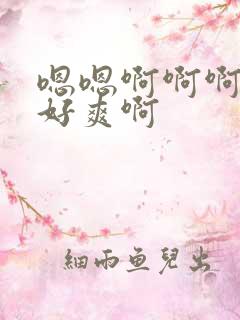 嗯嗯啊啊啊
好爽啊
細雨鱼兒出